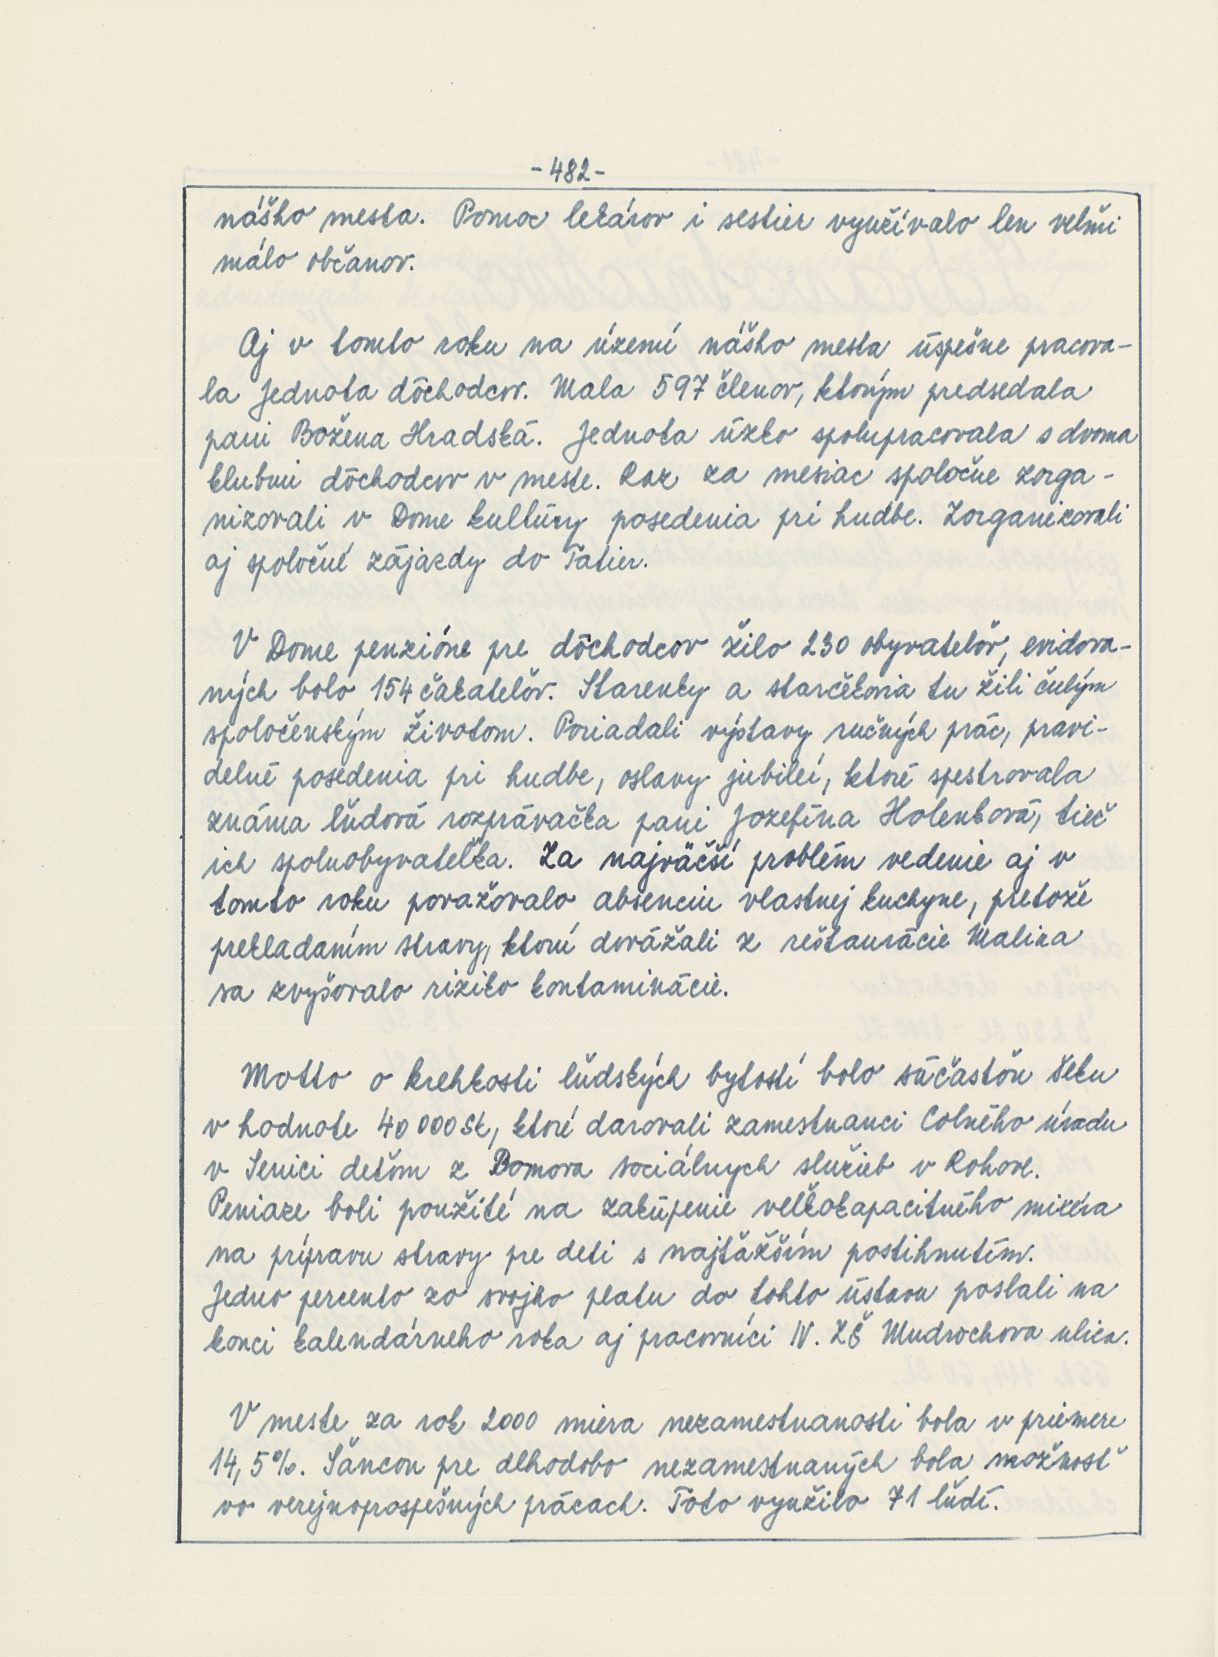 -482-
nášho mesta. Pomoc lekárov i sestier využívalo len veľmi
málo občanov.
Aj v tomto roku na území nášho mesta úspešne pracova-
la Jednota dôchodcov. Mala 597 členov, ktorým predsedala
pani Božena Hradská. Jednota úzko spolupracovala s dvoma
klubmi dôchodcov v meste. Raz za mesiac spoločne zorga-
nizovali v Dome kultúry posedenia pri hudbe. Zorganizovali
aj spoločné zájazdy do Tatier.
V Dome penzióne pre dôchodcov žilo 230 obyvateľov, evidova-
ných bolo 154 čakateľov. Starenky a starčekovia tu žili čulým
spoločenským životom. Poriadali výstavy ručných prác, pravi-
delné posedenia pri hudbe, oslavy jubileí, ktoré spestrovala
známa ľudová rozprávačka pani Jozefína Holenková, tiež
ich spoluobyvateľka. Za najväčší problém vedenie aj v
tomto roku považovalo absenciu vlastnej kuchyne, pretože
prekladaním stravy, ktorú dovážali z reštaurácie Malina
sa zvyšovalo riziko kontaminácie.
Motto o krehkosti ľudských bytostí bolo súčasťou šeku
v hodnote 40 000 Sk, ktoré darovali zamestnanci Colného úradu
v Senici deťom z Domova sociálnych služieb v Rohove.
Peniaze boli použité na zakúpenie veľkokapacitného mixéra
na prípravu stravy pre deti s najťažším postihnutím.
Jedno percento zo svojho platu do tohto ústavu poslali na
konci kalendárneho roka aj pracovníci IV. ZŠ Mudrochova ulica.
V meste za rok 2000 miera nezamestnanosti bola v priemere
14,5%. Šancou pre dlhodobo nezamestnaných bola možnosť
vo verejnoprospešných prácach. Toto využilo 71 ľudí.